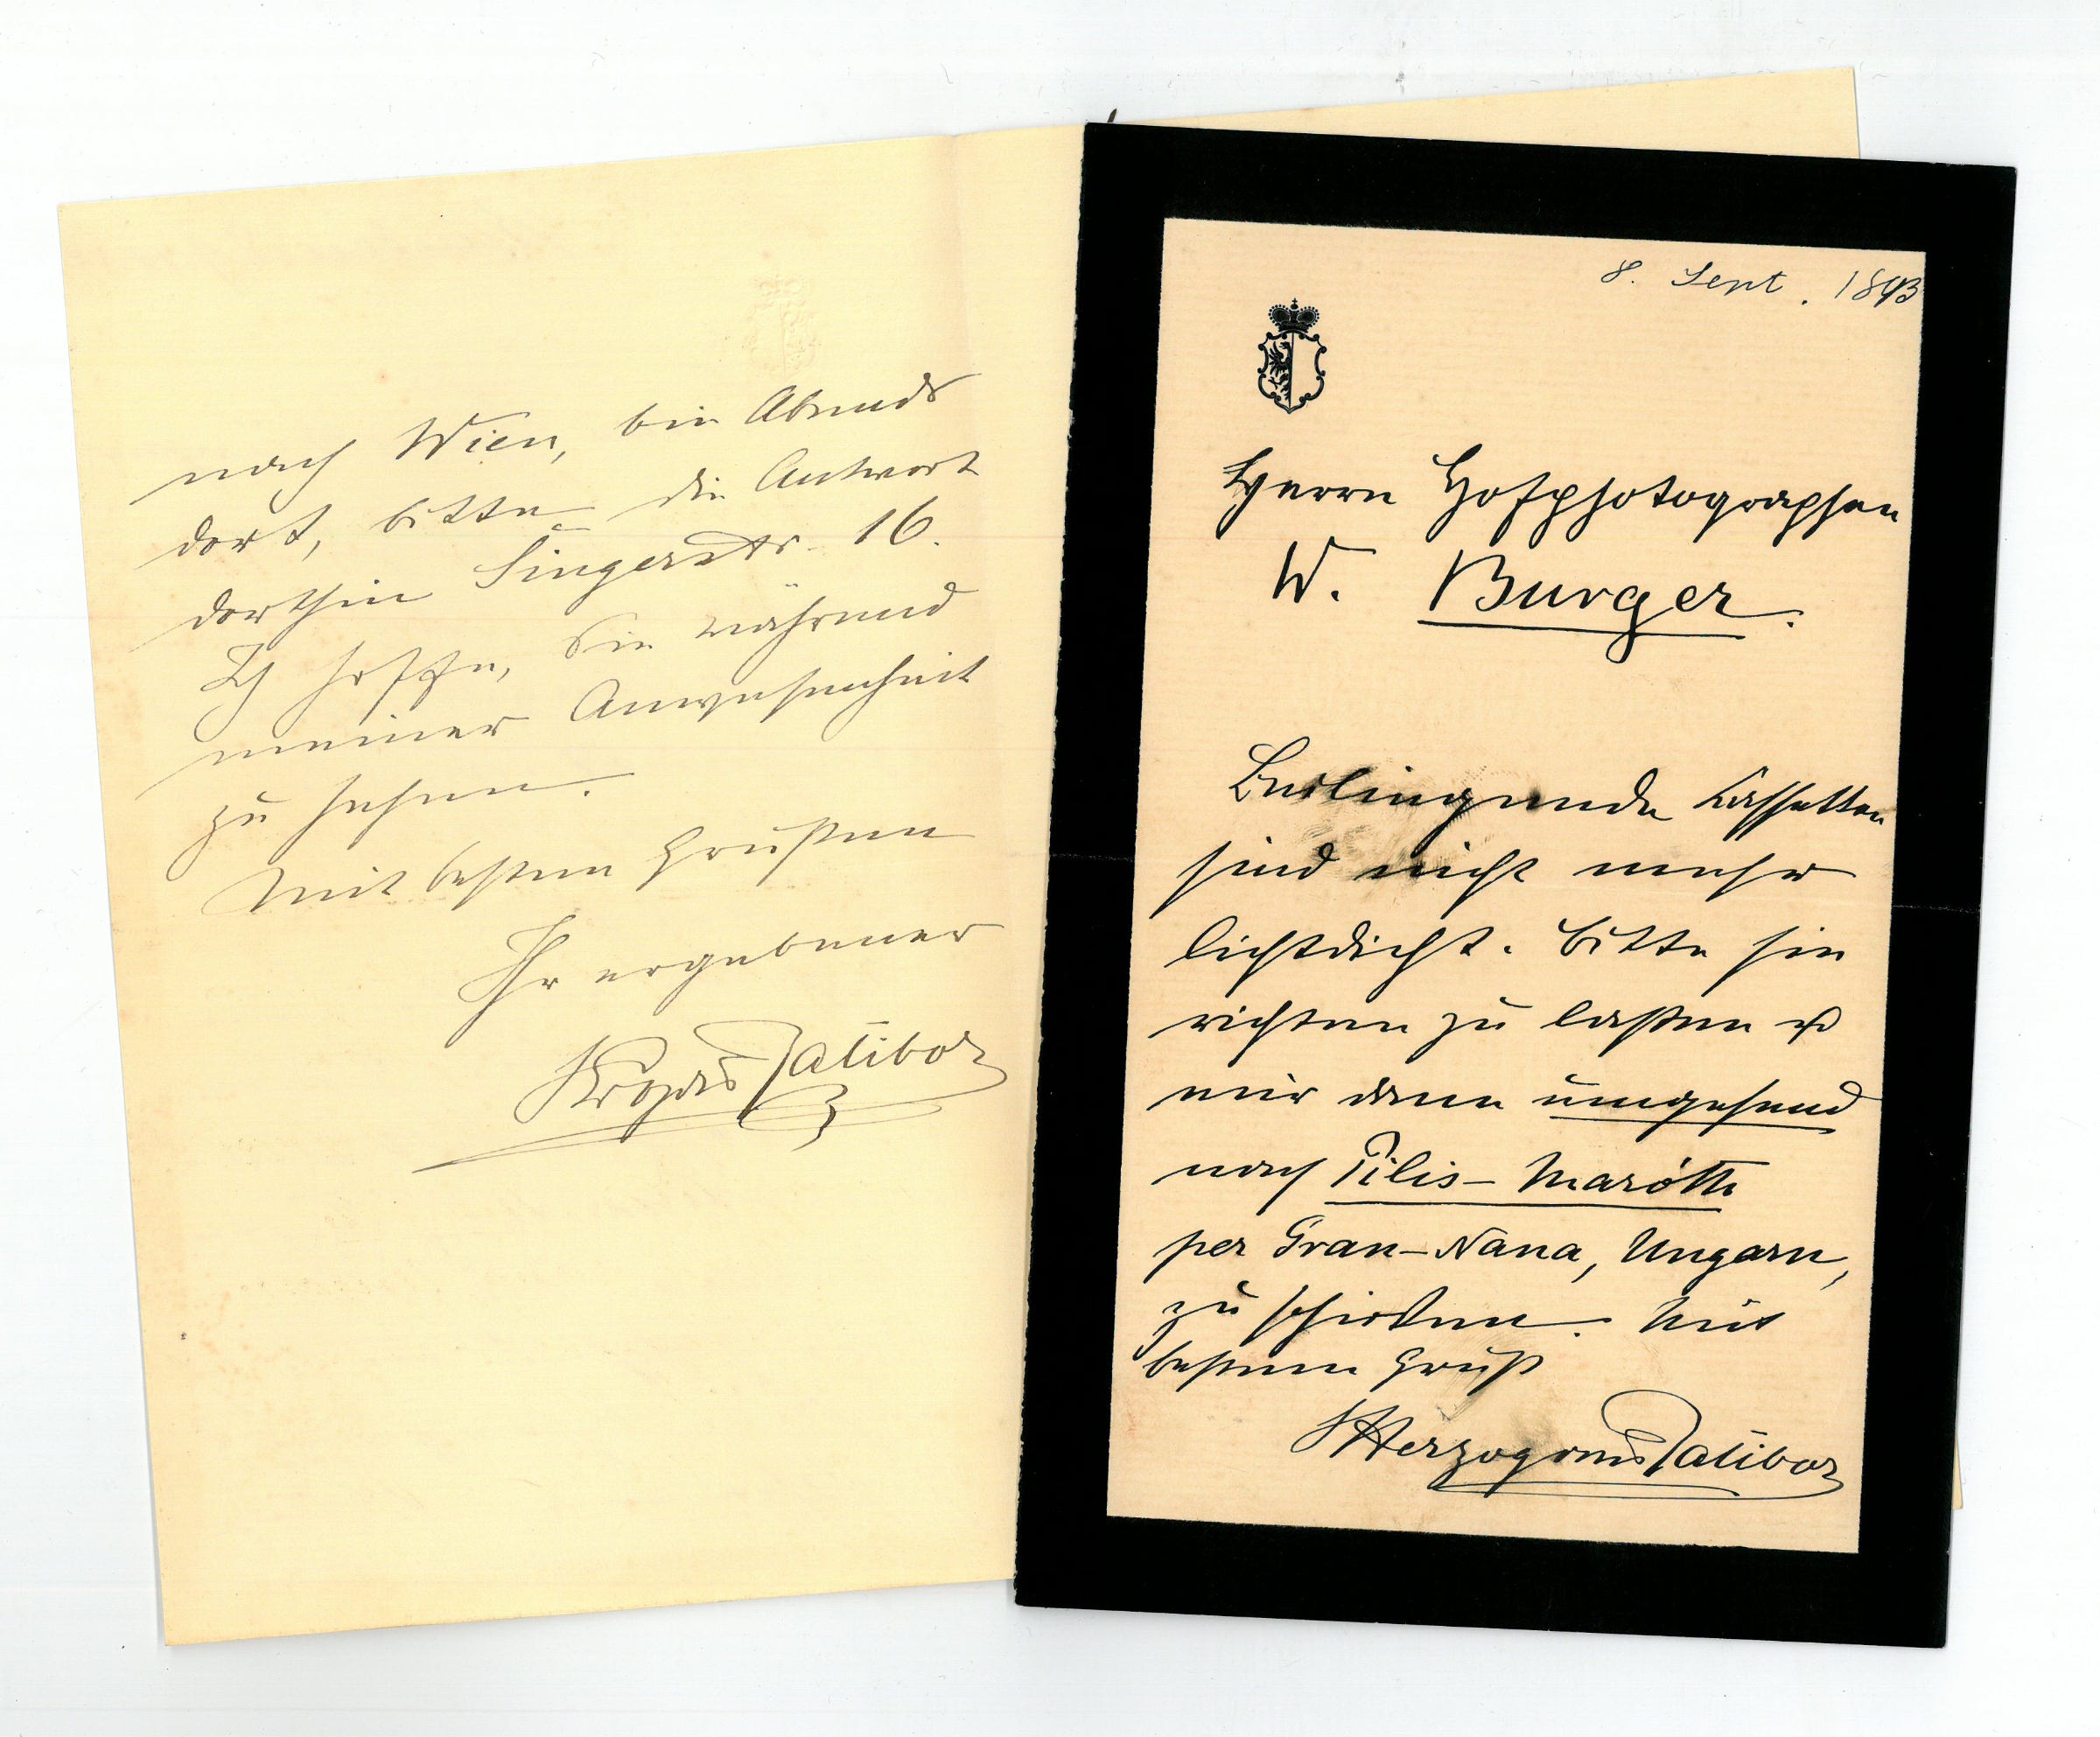 nach Wien, bin Abends
dort, bitte die Antwort
dorthin Singerstr. 16.
Ich hoffe, Sie während
meiner Anwesenheit
zu sehen.
Mit besten Grüßen
Ihr ergebener
Ratibor
8. Sept. 1893
Herrn Hofphotographen
W. Burger.
Beiliegende Cassetten
sind nicht mehr
lichtdicht. Bitte sie
richten zu laßen u
mir dann umgehend
nach Pilis-Maróth
per Gran-Nana, Ungarn,
zu schicken. Mit
bestem Gruß
Herzog von Ratibor